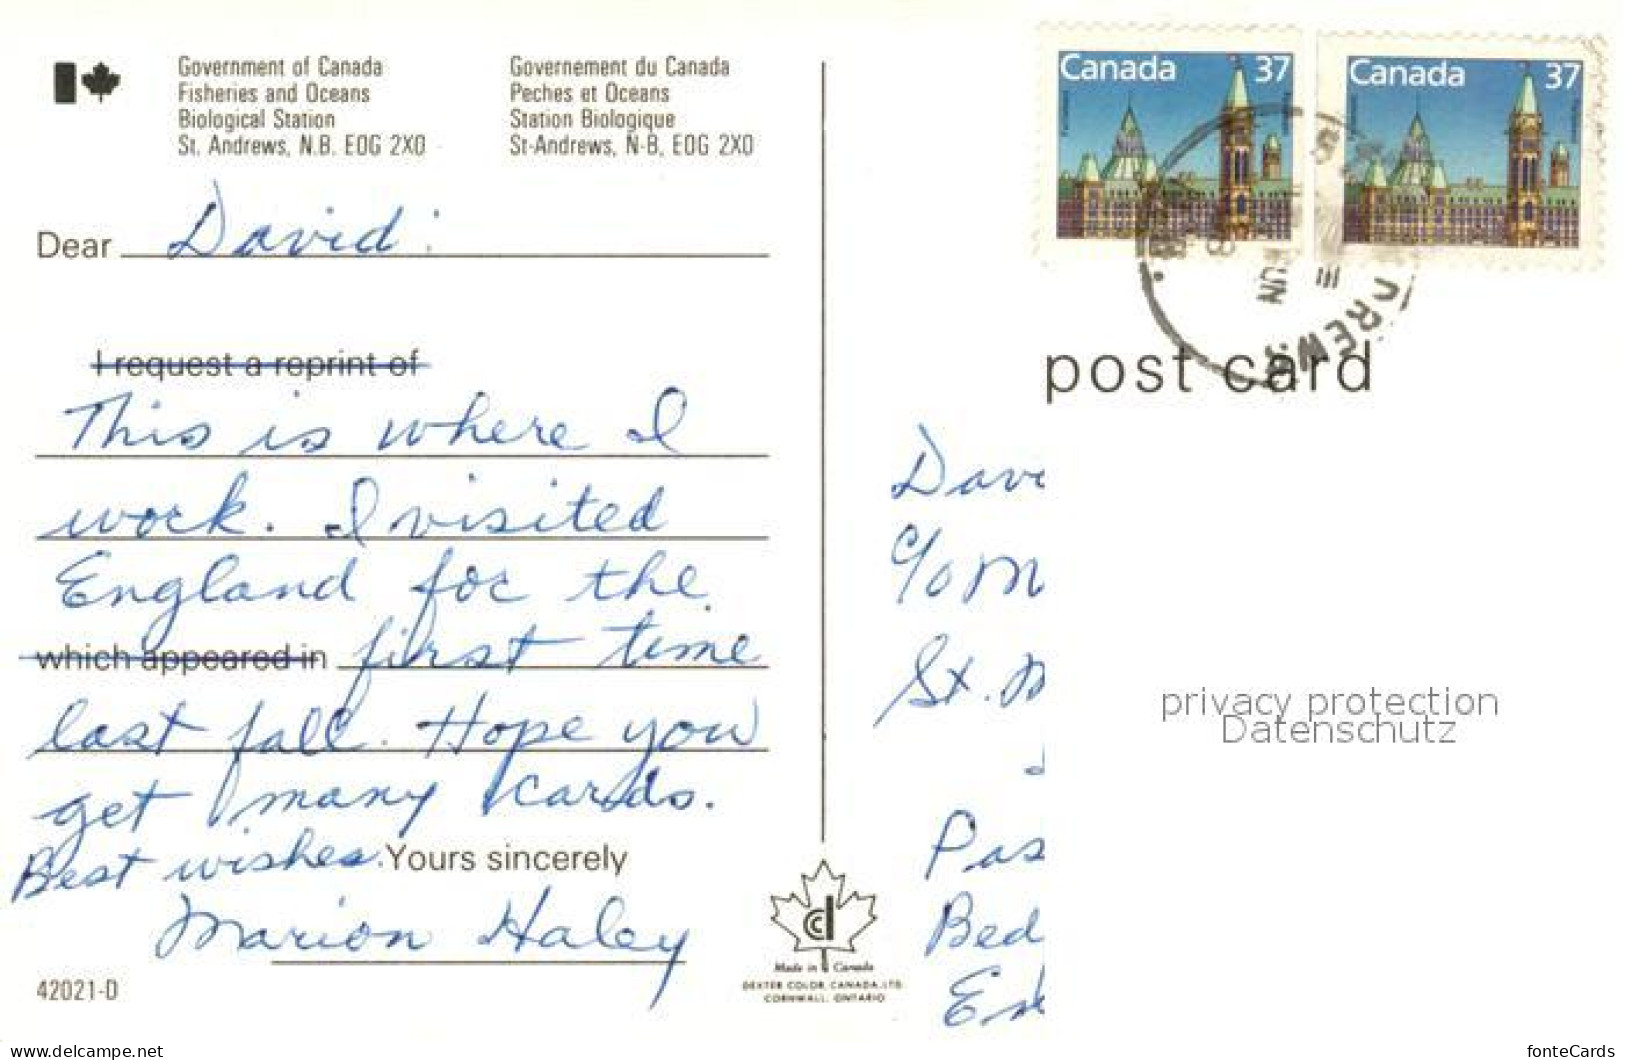 Government of Canada
Fisheries and Oceans
Biological Station
St. Andrews, N.B. E0G 2X0
Governement du Canada
Peches et Oceans
Station Biologique
St-Andrews, N-B, E0G 2X0
Canada 37
Canada 37
Dear David:
I request a reprint of
This is where I
work. I visited
England for the
which appeared in first time
last fall. Hope you
get many cards.
Best wishes. Yours sincerely
Marion Haley
42021-D
Made in Canada
DEXTER COLOR CANADA, LTD.
CORNWALL, ONTARIO
post card
c/o M
St. M
Pas
Bed
privacy protection
Datenschutz
delcampe.net
fonteCards